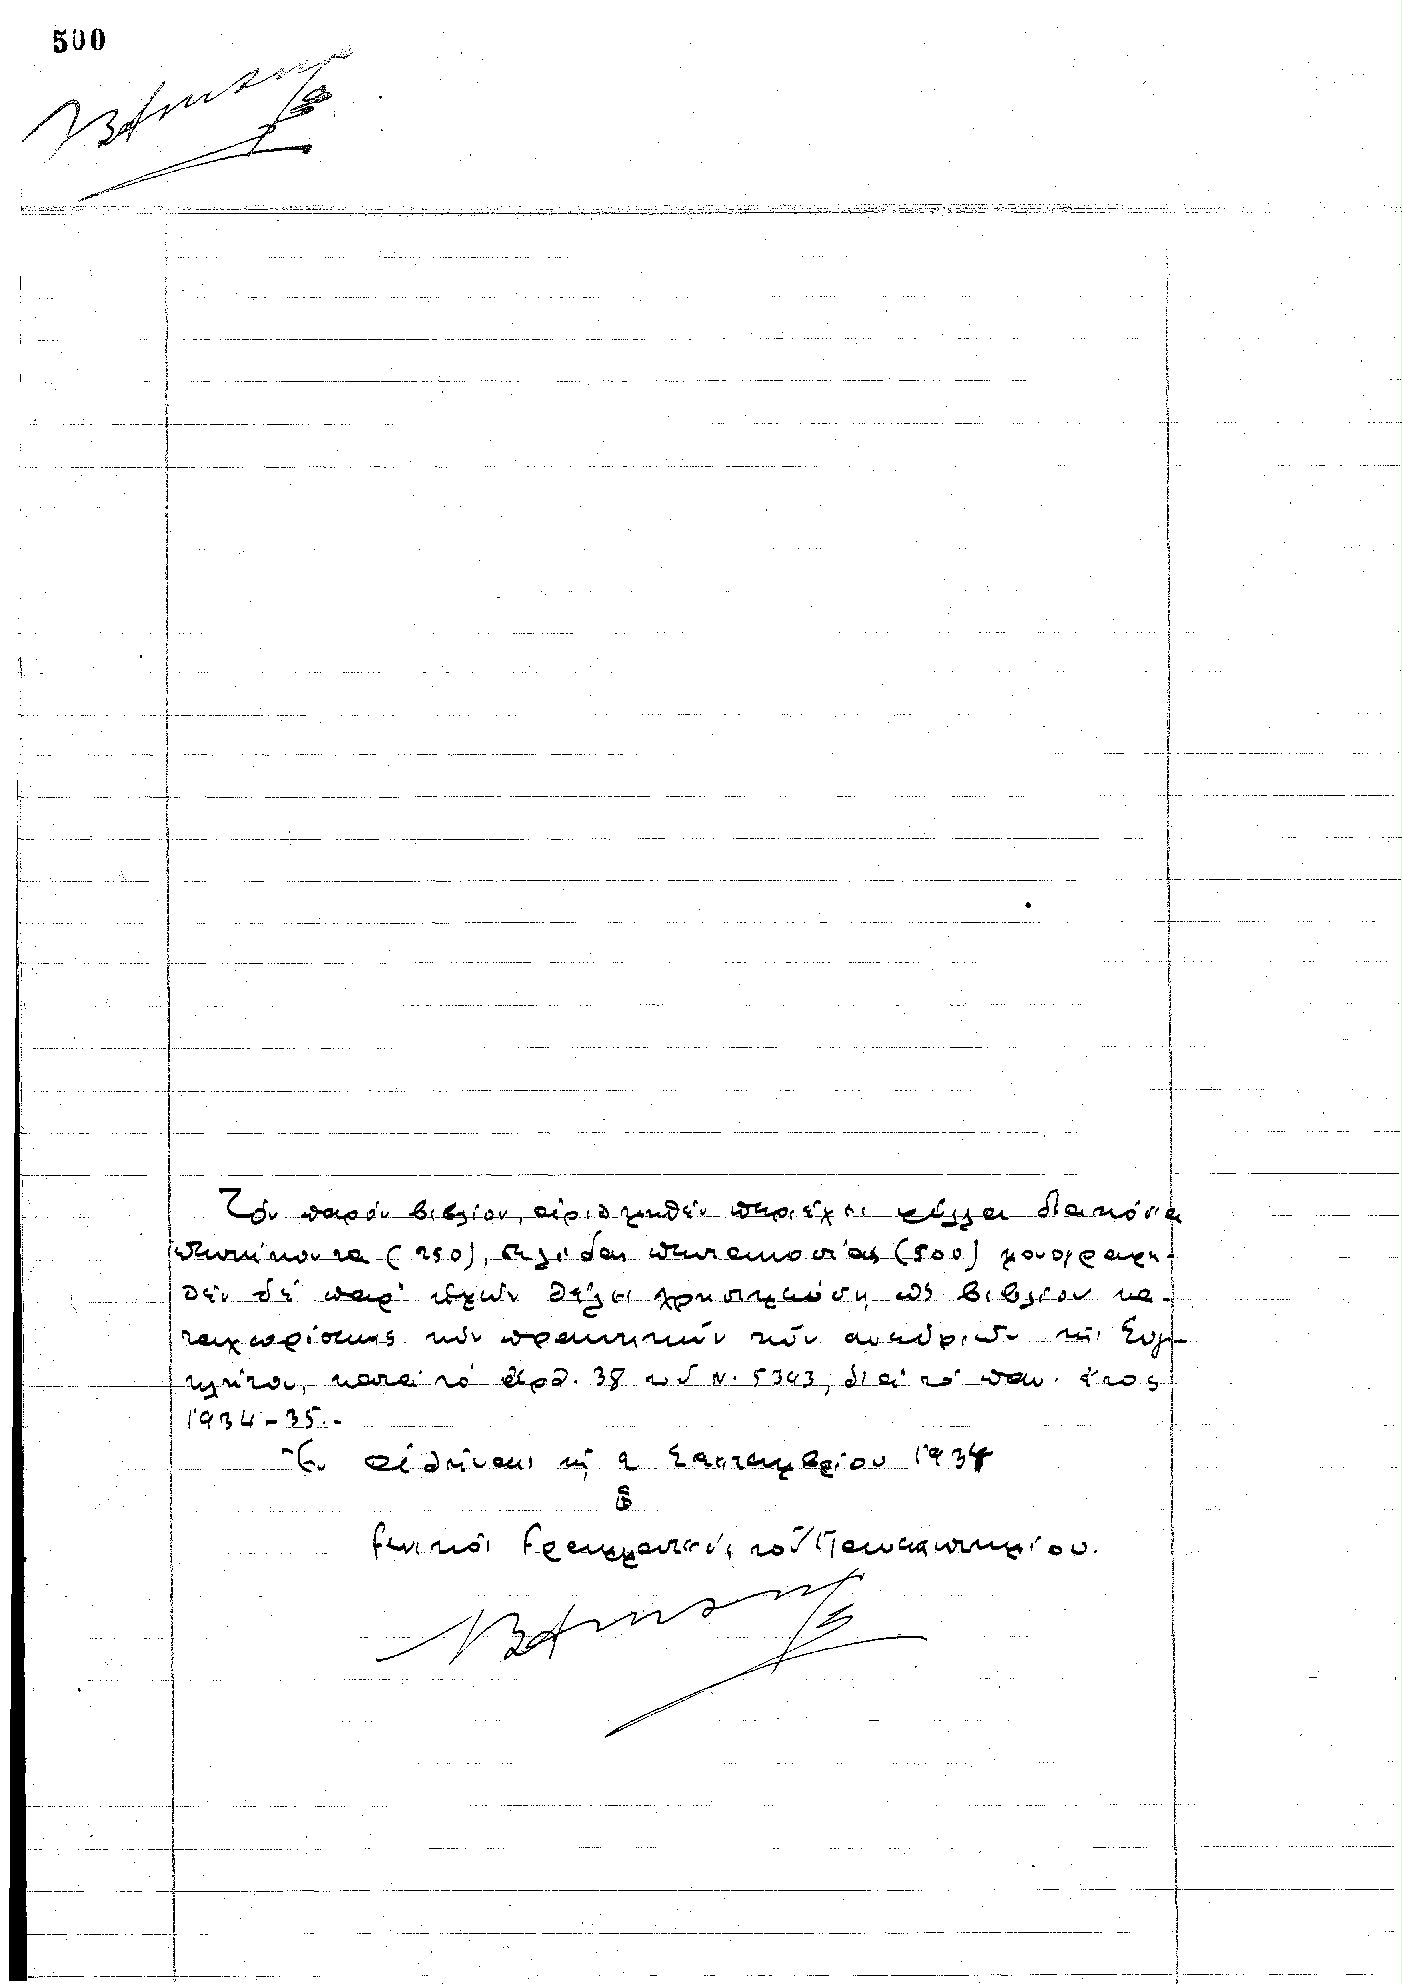 500
Τὸ παρὸν βιβλίον, ἀριθμηθὲν περιέχει φύλλα διακόσια
πεντήκοντα (250), σελίδας πεντακοσίας (500) μονογραφη-
θὲν δὲ παρ' ἡμῶν θέλει χρησιμεύσῃ ὡς βιβλίον κα-
ταχωρίσεως τῶν πρακτικῶν τῶν συνεδριῶν τῆς Συγ-
κλήτου, κατὰ τὸ ἄρθ. 38 τοῦ Ν. 5343, διὰ τὸ παν. ἔτος
1934-35.-
Ἐν Ἀθήναις τῇ 1 Σεπτεμβρίου 1934
Ὁ
Γενικὸς Γραμματεὺς τοῦ Πανεπιστημίου.